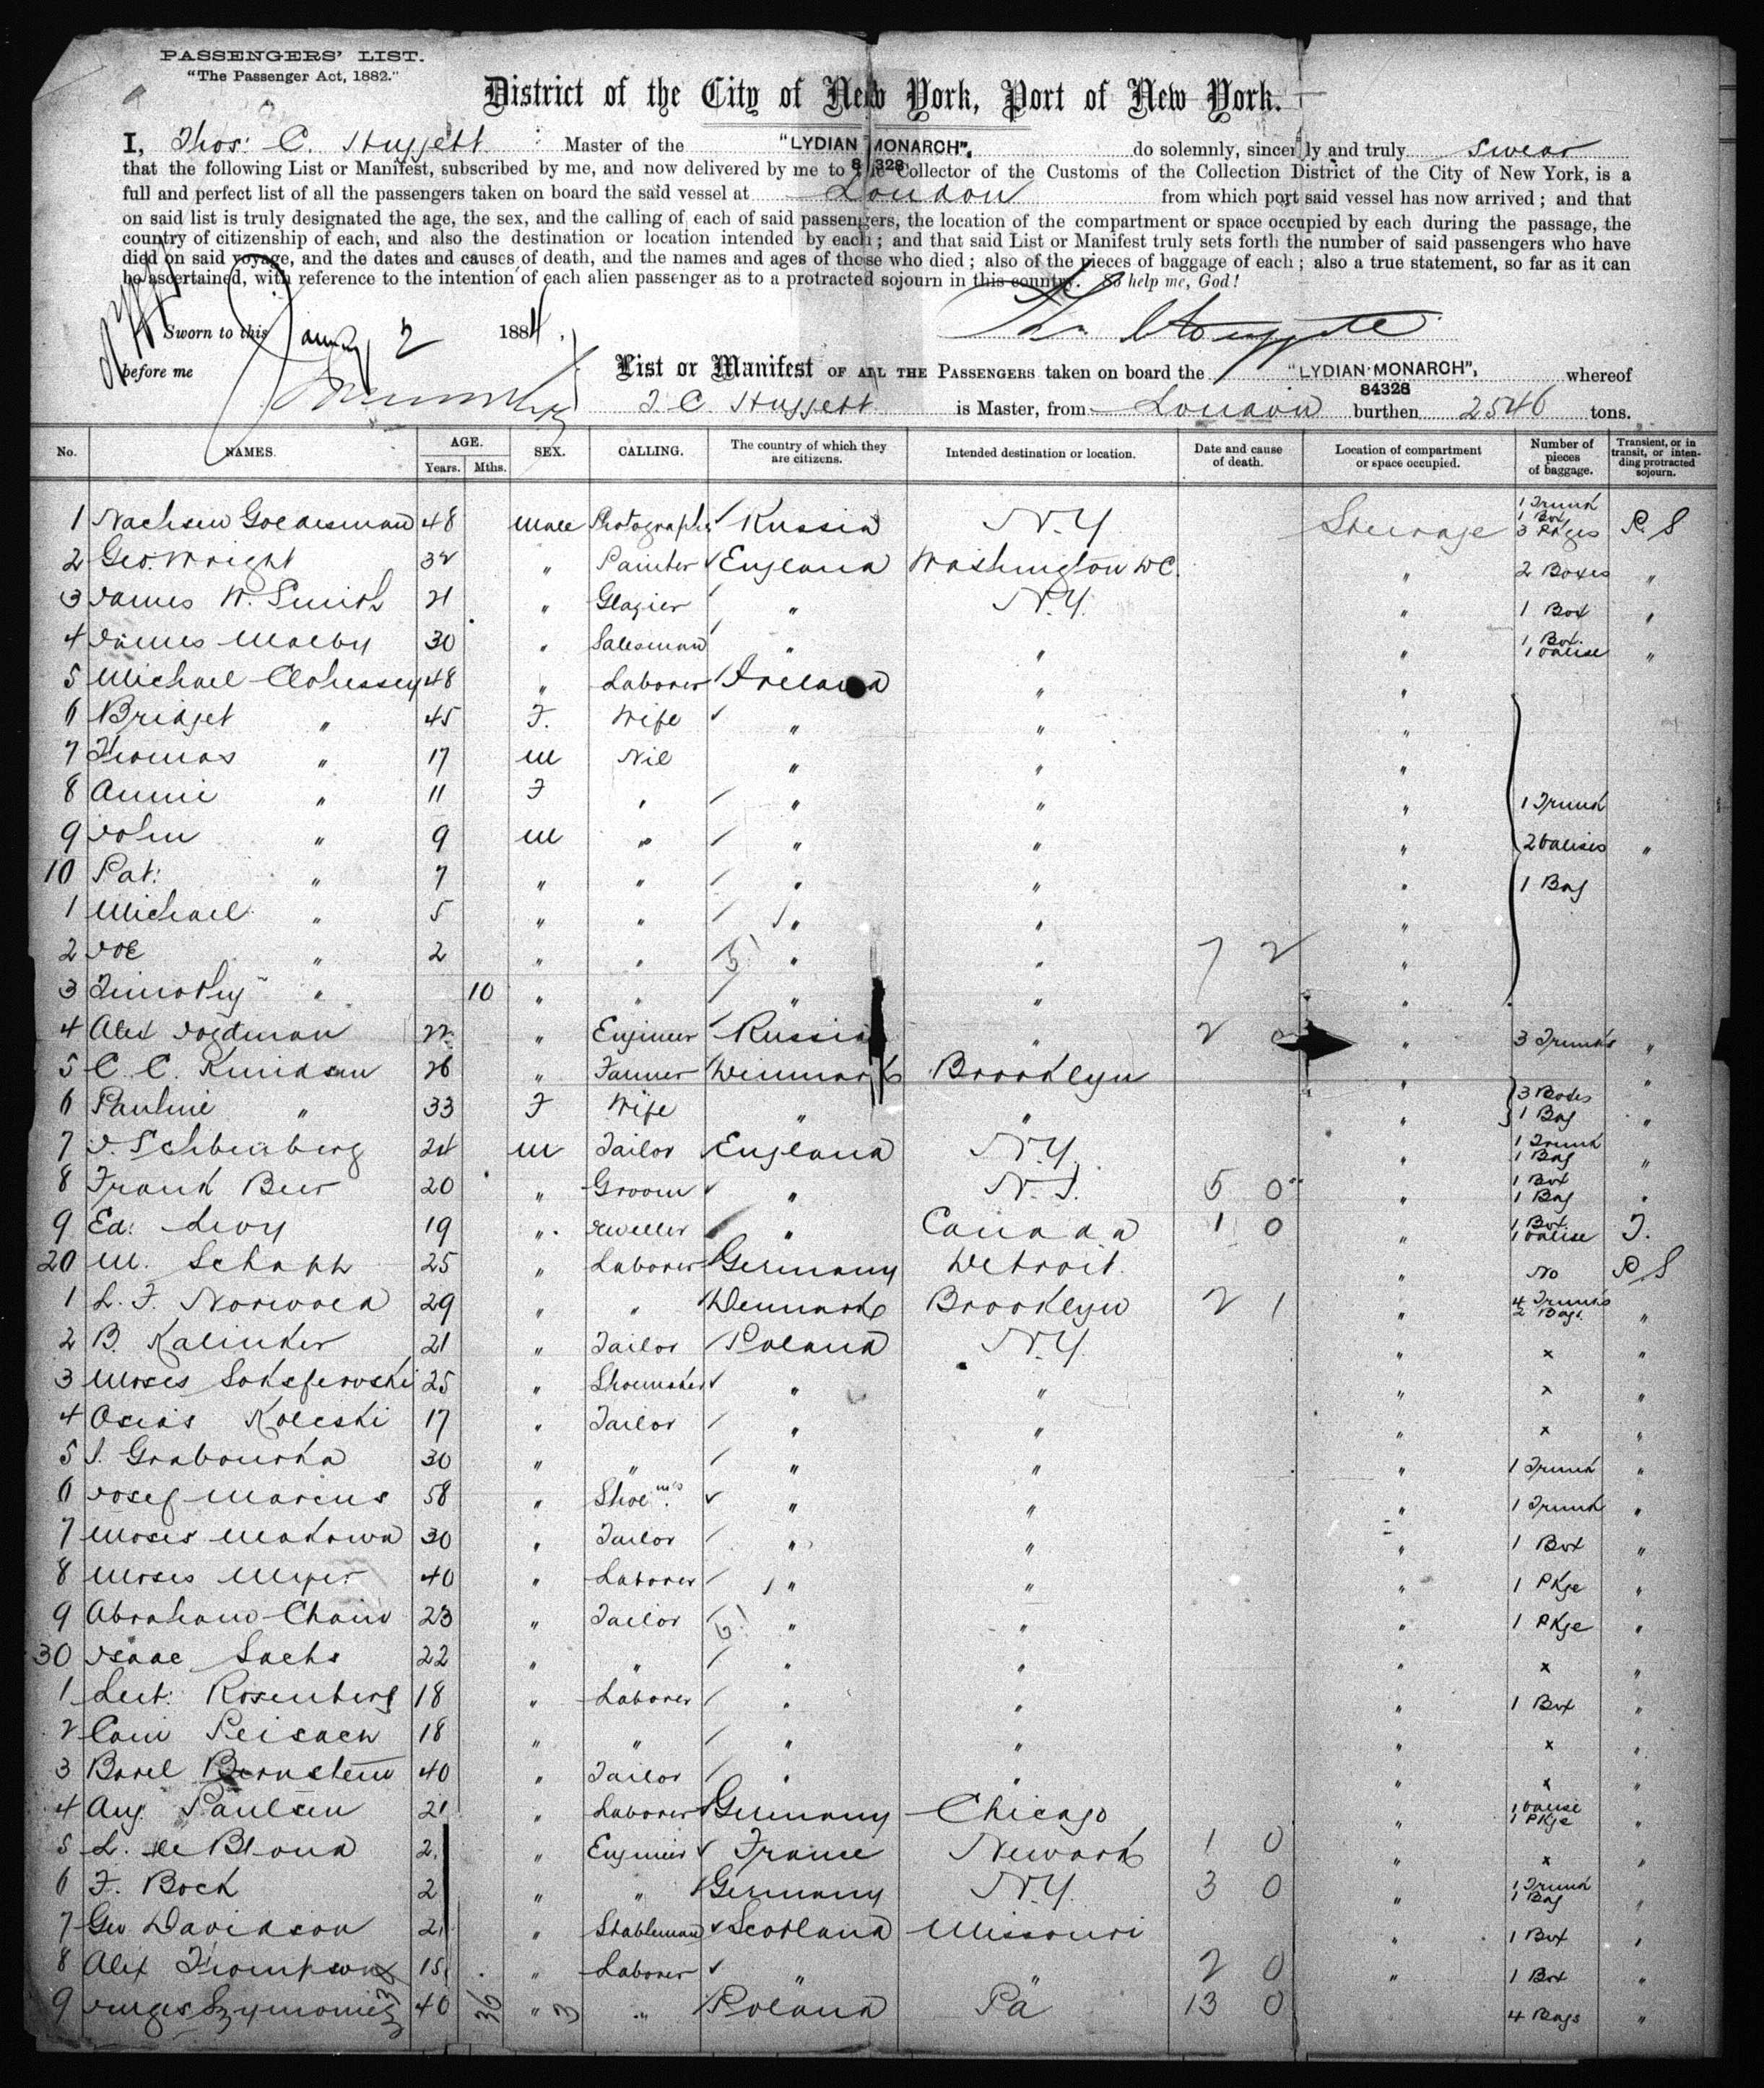 PASSENGERS' LIST.
"The Passenger Act, 1882."
District of the City of New York, Port of New York.
I, Thos: C. Huggett Master of the "LYDIAN MONARCH", do solemnly, sincerely and truly swear
that the following List or Manifest, subscribed by me, and now delivered by me to the Collector of the Customs of the Collection District of the City of New York, is a
full and perfect list of all the passengers taken on board the said vessel at London from which port said vessel has now arrived; and that
on said list is truly designated the age, the sex, and the calling of each of said passengers, the location of the compartment or space occupied by each during the passage, the
country of citizenship of each, and also the destination or location intended by each; and that said List or Manifest truly sets forth the number of said passengers who have
died on said voyage, and the dates and causes of death, and the names and ages of those who died; also of the pieces of baggage of each; also a true statement, so far as it can
be ascertained, with reference to the intention of each alien passenger as to a protracted sojourn in this country. So help me, God!
Sworn to this January 2 1884.
before me
List or Manifest OF ALL THE PASSENGERS taken on board the "LYDIAN MONARCH", whereof
84328
T C Huggett is Master, from London burthen 2546 tons.
No. NAMES. AGE. Years. Mths. SEX. CALLING. The country of which they are citizens. Intended destination or location. Date and cause of death. Location of compartment or space occupied. Number of pieces of baggage. Transient, or in transit, or intending protracted sojourn.
1 48 male Photographer Russia N.Y. Steerage 1 Trunk 1 Box 3 Pkges P. S
2 Geo. Wright 32 " Painter England Washington DC. " 2 Boxes "
3 James W. Smith 21 " Glazier " N.Y. " 1 Box "
4 James Malby 30 " Salesman " " " 1 Box. 1 Valise "
5 Michael Clohessey 48 " Laborer Ireland " "
6 Bridget " 45 F. Wife " " "
7 Thomas " 17 M Nil " " "
8 Annie " 11 F " " " " 1 Trunk
9 John " 9 M " " " " 2 Valises "
10 Pat: " 7 " " " " " 1 Bag
1 Michael " 5 " " " " "
2 Joe " 2 " " " " 7 2 "
3 Timothy " 10 " " " " "
4 Alex 22 " Engineer Russia " 2 0 " 3 Trunks "
5 C. C. Knudsen 26 " Farmer Denmark Brooklyn " "
6 Pauline " 33 F Wife " " " 3 Boxes 1 Bag "
7 24 M Tailor England N.Y. " 1 Trunk 1 Bag "
8 Frank 20 " Groom " N.J. 5 0 " 1 Box 1 Bag "
9 Ed: Levy 19 " Jweller " Canada 1 0 " 1 Box. 1 Valise T.
20 M. Schapp 25 " Laborer Germany Detroit. " No P S
1 L. F. 29 " " Denmark Brooklyn 2 1 " 4 Trunks 2 Bags. "
2 B. Kalinker 21 " Tailor Poland N.Y. " x "
3 Moses 25 " Shoemaker " " " x "
4 Koleski 17 " Tailor " " " x "
5 Grabowska 30 " " " " " 1 Trunk "
6 Josef Marcus 58 " Shoe " " " 1 Trunk "
7 Moses Makowa 30 " Tailor " " " 1 Box "
8 Moses Myer 40 " Laborer " " " 1 Pkge "
9 Abraham Chaim 23 " Tailor " " " 1 Pkge "
30 Isaac Sachs 22 " " " " " x "
1 Rosenberg 18 " Laborer " " " 1 Box "
2 Peisach 18 " " " " " x "
3 Borel Bernstein 40 " Tailor " " " x "
4 Aug. Paulsen 21 " Laborer Germany Chicago " 1 Valise 1 Pkge "
5 L. De Blond 2 " Engineer France Newark 1 0 " x "
6 F. Bock 2 " " Germany N.Y. 3 0 " 1 Trunk 1 Bag "
7 Geo Davidson 21 " Stableman Scotland Missouri " 1 Box "
8 Alex Thompson 15 " Laborer " " 2 0 " 1 Box "
9 Szymonies 40 " " Poland Pa 13 0 4 Bags "